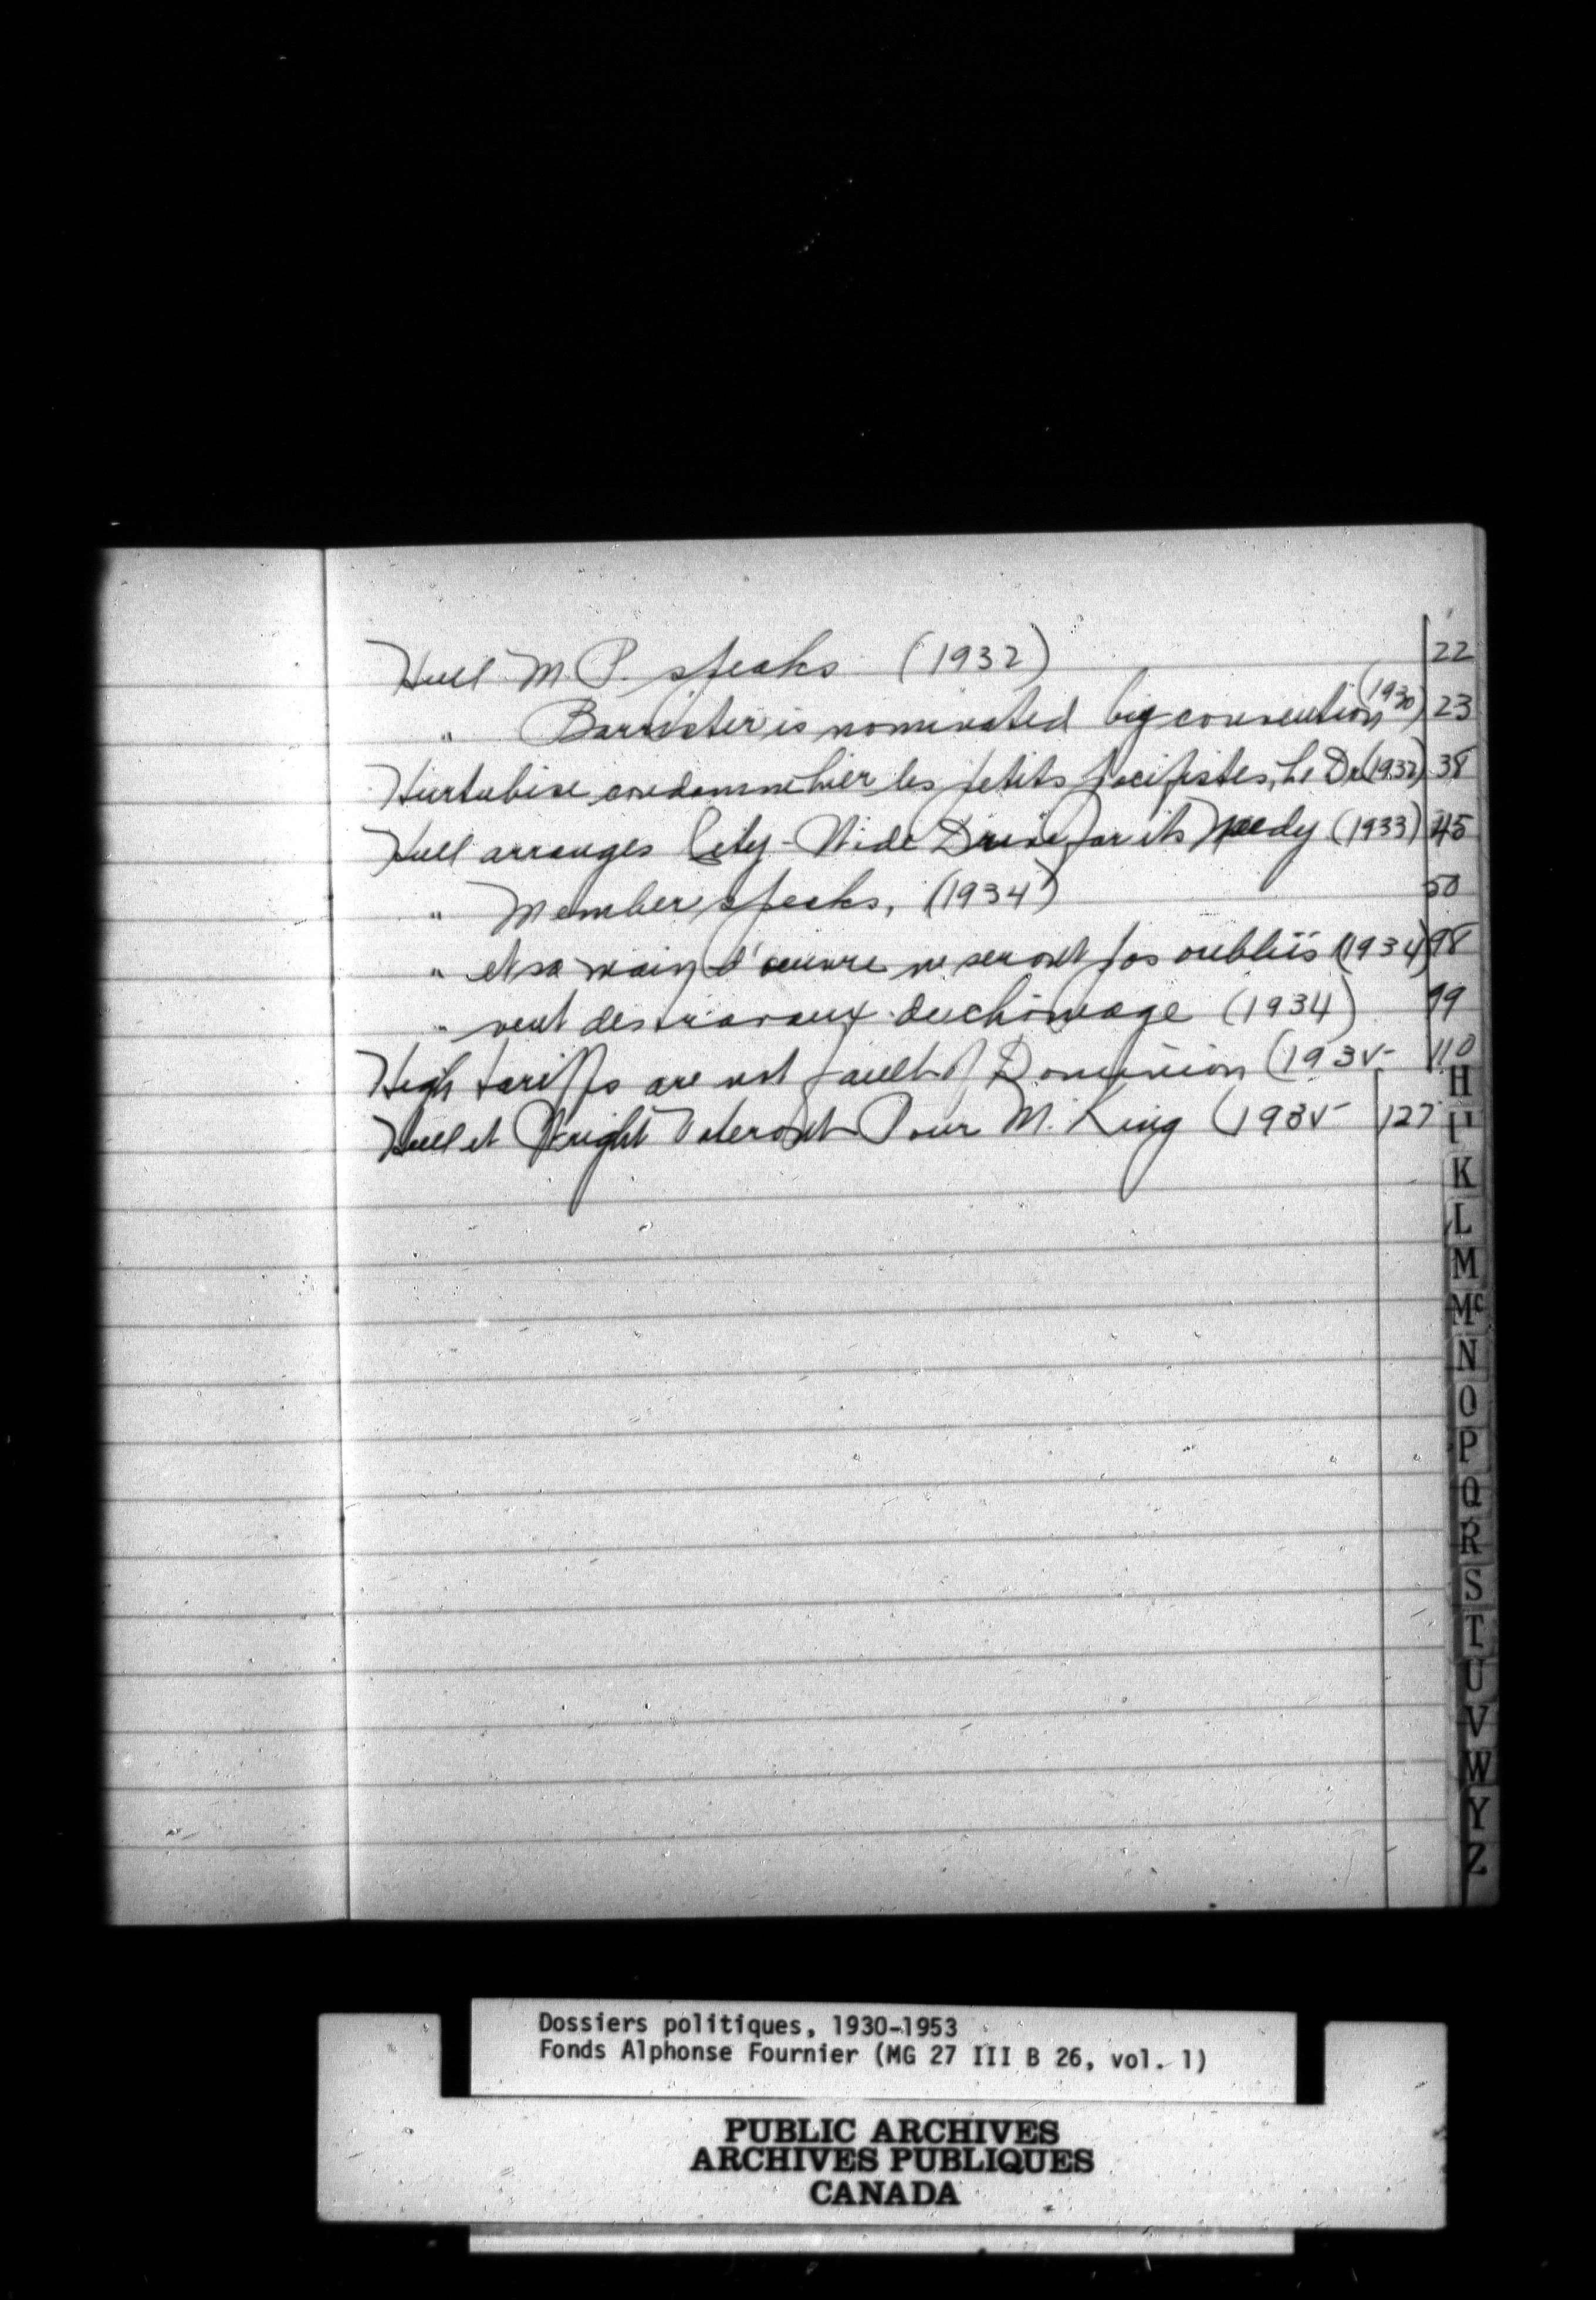 Hull M.P. speaks (1932) 22
" Barrister is nominated by convention (1930) 23
Hurtubise condamne hier les petits pacifistes, Le Dr (1932) 38
Hull arranges City-Wide Drive for its needy (1933) 45
" Member speaks, (1934) 50
" et sa main d'oeuvre ne seront pas oubliés (1934) 98
" veut des travaux de chômage (1934) 99
High tariffs are not fault of Dominion (1935 110
Hull et Wright Voteront Pour M. King (1935 127
H
K
L
M
Mc
N
O
P
Q
R
S
T
U
V
W
Y
Z
Dossiers politiques, 1930-1953
Fonds Alphonse Fournier (MG 27 III B 26, vol. 1)
PUBLIC ARCHIVES
ARCHIVES PUBLIQUES
CANADA